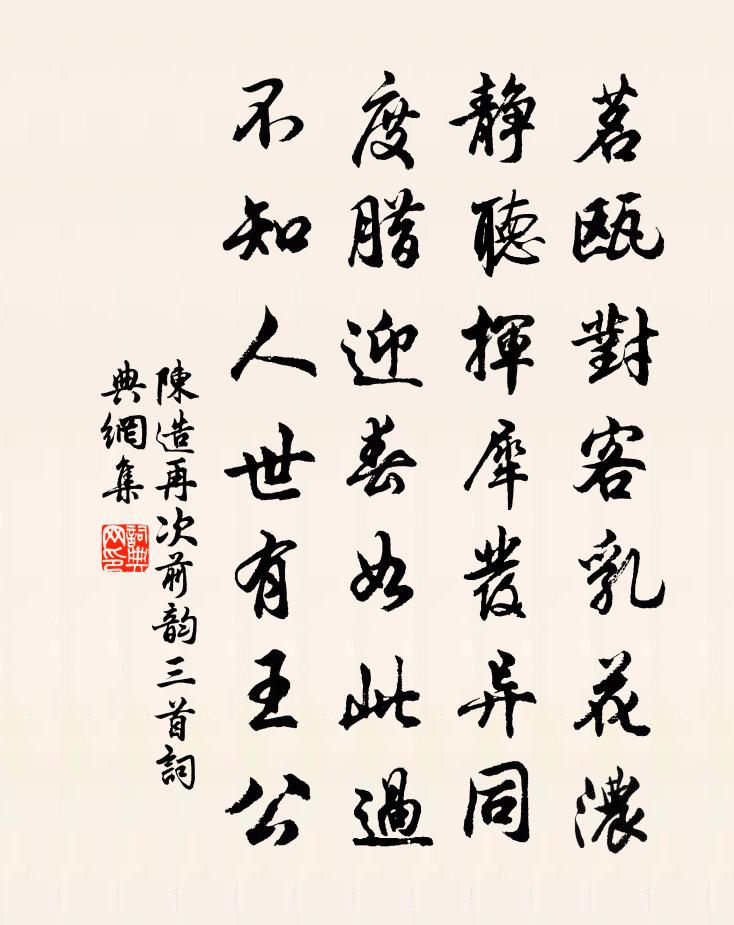 茗甌對客乳花濃
靜聽揮犀發异同
度腊迎春如此過
不知人世有王公
陳造再次前韵三首詞
典網集
詞典
网印